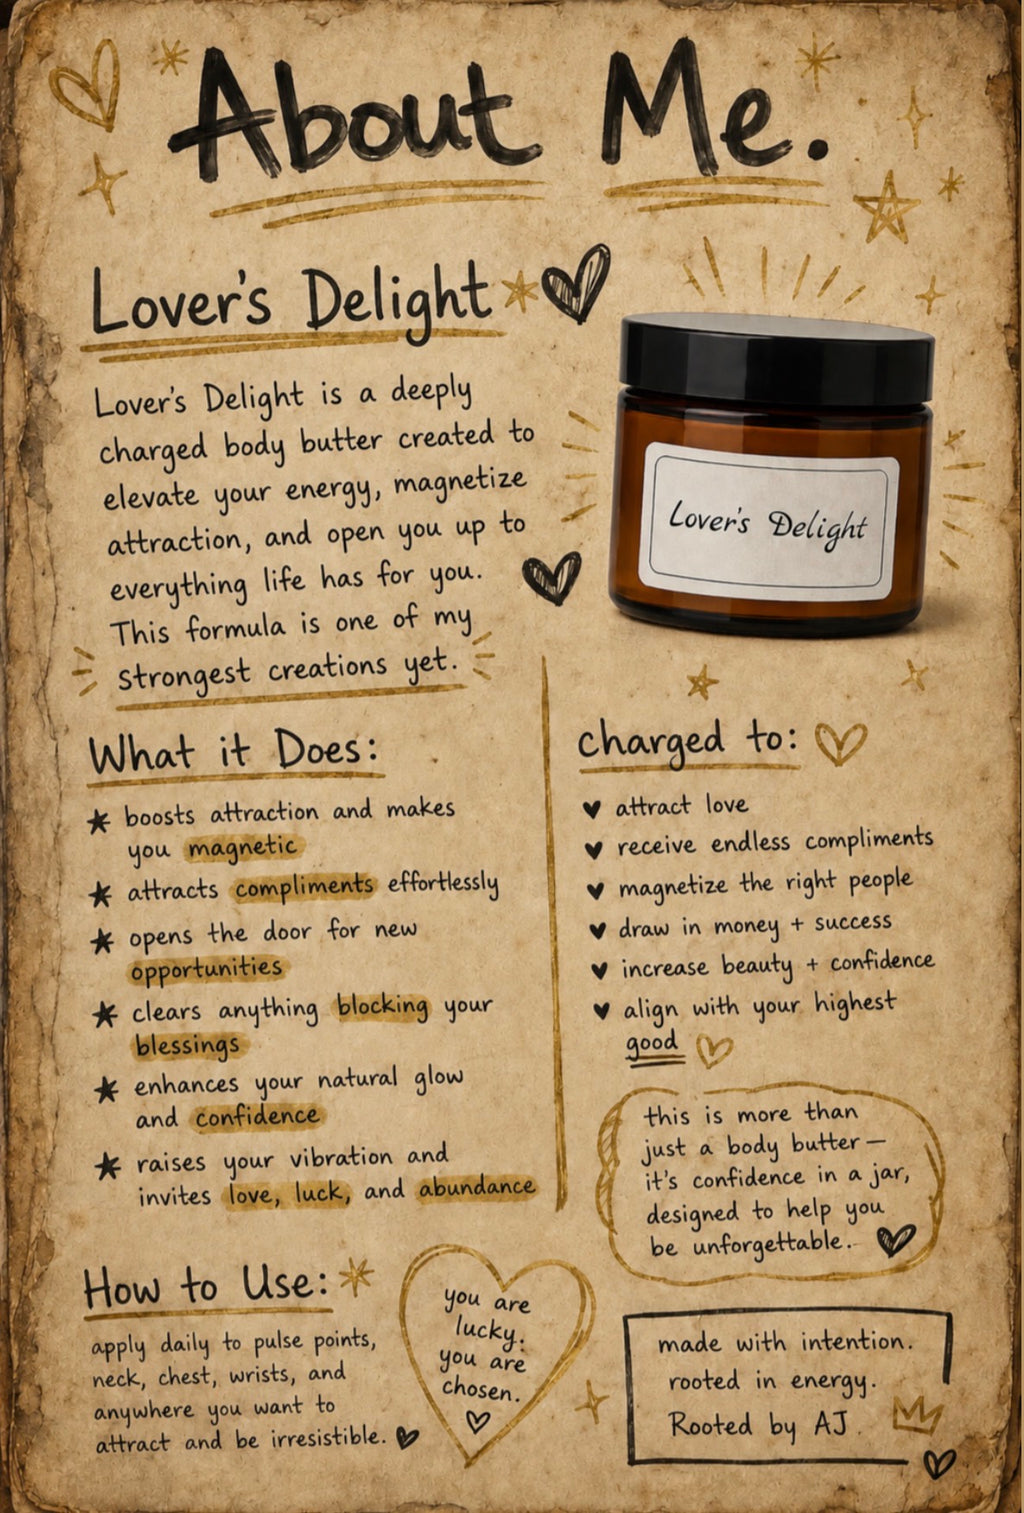 About Me.
Lover's Delight
Lover's Delight is a deeply
charged body butter created to
elevate your energy, magnetize
attraction, and open you up to
everything life has for you.
This formula is one of my
strongest creations yet.
Lover's Delight
What it Does:
boosts attraction and makes
you magnetic
attracts compliments effortlessly
opens the door for new
opportunities
clears anything blocking your
blessings
enhances your natural glow
and confidence
raises your vibration and
invites love, luck, and abundance
charged to:
attract love
receive endless compliments
magnetize the right people
draw in money + success
increase beauty + confidence
align with your highest
good
this is more than
just a body butter—
it's confidence in a jar,
designed to help you
be unforgettable.
How to Use:
apply daily to pulse points,
neck, chest, wrists, and
anywhere you want to
attract and be irresistible.
you are
lucky.
you are
chosen.
made with intention.
rooted in energy.
Rooted by AJ